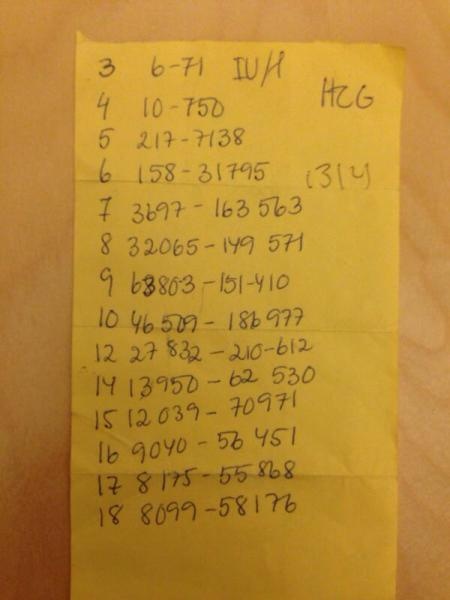 3 6-71 IU/l
HCG
4 10-750
5 217-7138
6 158-31795 (314)
7 3697-163 563
8 32065-149 571
9 63803-151-410
10 46509-186977
12 27832-210-612
14 13950-62 530
15 12039-70971
16 9040-56 451
17 8175-55868
18 8099-58176